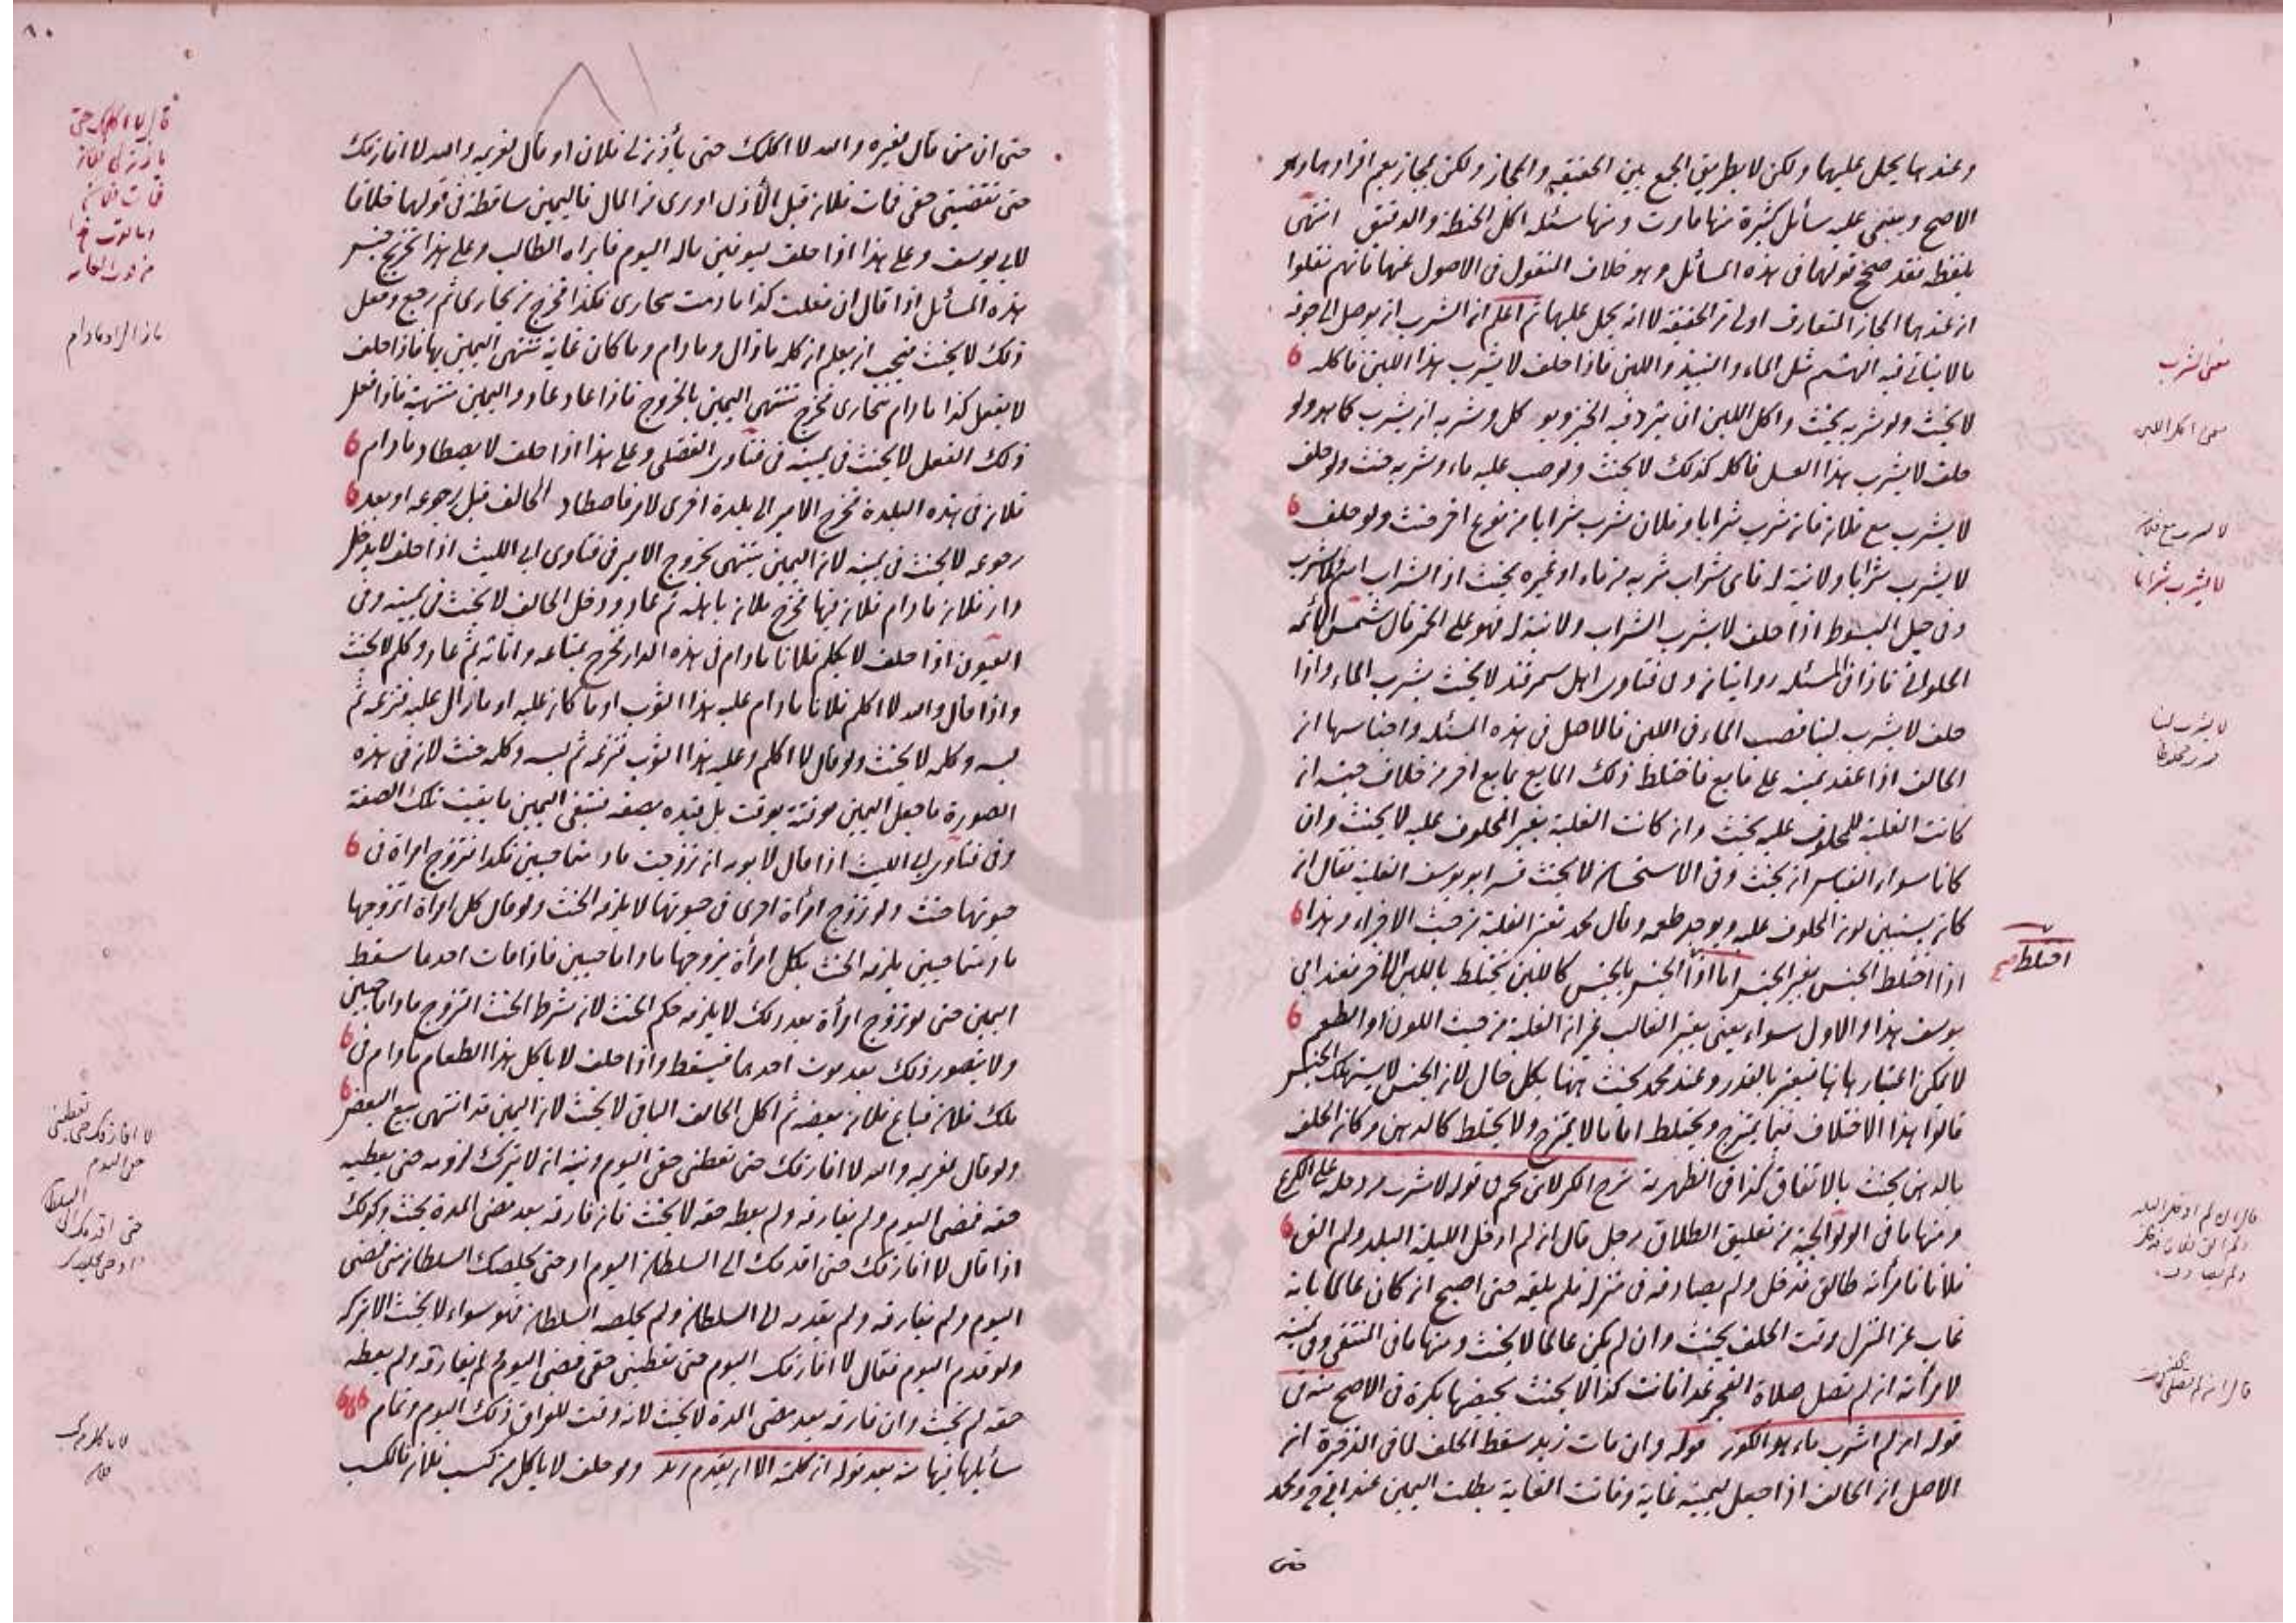 وعندهما يحمل عليهما ولكن لا بطريق الجمع بين الحقيقة والمجاز ولكن بمجاز يعم افرادهما وهو
الاصح ويبتنى عليه مسائل كثيرة منها ما مرت ومنها مسئلة اكل الحنطة والدقيق انتهى
بلفظه فقد صحح قولهما فى هذه المسائل وهو خلاف المنقول فى الاصول عنهما فانهم نقلوا
ان عندهما المجاز المتعارف اولى من الحقيقة لا انه يحمل عليهما ثم اعلم ان الشرب ان يوصل الى جوفه
ما لا يتاتى فيه الهشم مثل الماء والنبيذ واللبن فاذا حلف لا يشرب هذا اللبن فاكله
لا يحنث ولو شربه يحنث واكل اللبن ان يثرد فيه الخبز ويوكل وشربه ان يشرب كما هو ولو
حلف لا يشرب هذا العسل فاكله كذلك لا يحنث ولو صب عليه ماء وشربه حنث ولو حلف
لا يشرب مع فلان فان شرب شرابا وفلان شرب شرابا من نوع اخر حنث ولو حلف
لا يشرب شرابا ولا نية له فاى شراب شربه من ماء او غيره يحنث اذ الشراب اسم لما يشرب
وفى حيل المبسوط اذا حلف لا يشرب الشراب ولا نية له فهو على الخمر قال شمس الائمه
الحلوانى فاذا فى المسئله روايتان وفى فتاوى اهل سمرقند لا يحنث بشرب الماء واذا
حلف لا يشرب لبنا فصب الماء فى اللبن فالاصل فى هذه المسئله واجناسها ان
الحالف اذا عقد يمينه على مايع فاختلط ذلك المايع بمايع اخر من خلاف جنسه ان
كانت الغلبة للمحلوف عليه يحنث وان كانت الغلبة بغير المحلوف عليه لا يحنث وان
كانا سواء القياس ان يحنث وفى الاستحسان لا يحنث فسر ابو يوسف الغلبة فقال ان
كان يستبين لون المحلوف عليه ويوجد طعمه وقال محمد تعتبر الغلبة من حيث الاجزاء وهذا
اذا اختلط الجنس بغير الجنس اما اذا الجنس بالجنس كاللبن يختلط باللبن الاخر فعند ابى
يوسف هذا والاول سواء يعنى يعتبر الغالب غير ان الغلبة من حيث اللون او الطعم
لا يمكن اعتبارها فيعتبر بالقدر وعند محمد يحنث ههنا بكل حال لان الجنس لا يستهلك الجنس
قالوا هذا الاختلاف فيما يمتزج ويختلط اما ما لا يمتزج ولا يختلط كالدهن وكان الحلف
بالدهن يحنث بالاتفاق كذا فى الظهيرية شرح الكنز لابن بحر من قوله لا يشرب من دجله على الكرع
ومنها ما فى الولوالجية من تعليق الطلاق رجل قال ان لم ادخل الليلة البلد ولم الق
فلانا فامرأته طالق فدخل ولم يصادفه فى منزله فلم يلقه حتى اصبح ان كان عالما بانه
غاب عن المنزل وقت الحلف يحنث وان لم يكن عالما لا يحنث ومنها ما فى المنتقى وفى يمينه
لامرأته ان لم تصل صلاة الفجر غدا فانت كذا لا يحنث بحيضها بكرة فى الاصح منه فى
قوله ان لم اشرب ماء هذا الكوز قوله وان مات زيد سقط الحلف لما فى الذخيرة ان
الاصل ان الحالف اذا جعل ليمينه غاية وفاتت الغاية بطلت اليمين عند ابى ح ومحمد
حتى
معنى الشرب
معنى اكل اللبن
لا يشرب مع فلان
لا يشرب شرابا
لا يشرب لبنا
اختلط صح
قال ان لم ادخل الليلة
حتى ان من قال لغيره والله لا اكلمك حتى يأذن لى فلان او قال لغريمه والله لا افارقك
حتى تقضينى حقى فمات فلان قبل الأذن او برى من المال فاليمين ساقطة فى قولهما خلافا
لابى يوسف وعلى هذا اذا حلف ليوفينه ماله اليوم فابراه الطالب وعلى هذا تخرج جنس
هذه المسائل اذا قال ان فعلت كذا ما دمت ببخارى فكذا فخرج من بخارى ثم رجع وفعل
ذلك لا يحنث فيجب ان يعلم ان كلمه مازال ومادام وما كان غاية تنتهى اليمين بها فاذا حلف
لا يفعل كذا مادام ببخارى فخرج تنتهى اليمين بالخروج فاذا عاد عاد واليمين منتهية فاذا فعل
ذلك الفعل لا يحنث فى يمينه فى فتاوى الفضلى وعلى هذا اذا حلف لا يصطاد مادام
فلان فى هذه البلدة فخرج الامير الى بلدة اخرى لامر فاصطاد الحالف قبل رجوعه او بعد
رجوعه لا يحنث فى يمينه لان اليمين ينتهى بخروج الامير فى فتاوى ابى الليث اذا حلف لا يدخل
دار فلان مادام فلان فيها فخرج فلان باهله ثم عاد ودخل الحالف لا يحنث فى يمينه وفى
العيون اذا حلف لا يكلم فلانا مادام فى هذه الدار فخرج بمتاعه واثاثه ثم عاد وكلم لا يحنث
واذا قال والله لا اكلم فلانا مادام عليه هذا الثوب او ما كان عليه او مازال عليه فنزعه ثم
لبسه وكلمه لا يحنث ولو قال لا اكلم وعليه هذا الثوب فنزعه ثم لبسه وكلمه حنث لان فى هذه
الصورة ما جعل اليمين موقتة بوقت بل قيده بصفة فتبقى اليمين ما بقيت تلك الصفة
وفى فتاوى ابى الليث اذا قال لابويه ان تزوجت مادمتما حيين فكذا فتزوج امراة فى
حيوتهما حنث ولو تزوج امرأة اخرى فى حيوتهما لا يلزمه الحنث ولو قال كل امراة اتزوجها
مادمتما حيين يلزمه الحنث بكل امرأة يتزوجها ماداما حيين فاذا مات احدهما سقط
اليمين حتى لو تزوج امرأة بعد ذلك لا يلزمه حكم الحنث لان شرط الحنث التزوج ماداما حيين
ولا يتصور ذلك بعد موت احدهما فيسقط واذا حلف لا ياكل هذا الطعام مادام فى
ملك فلان فباع فلان بعضه ثم اكل الحالف الباقى لا يحنث لان اليمين قد انتهى ببيع البعض
ولو قال لغريمه والله لا افارقك حتى تعطينى حقى اليوم ونيته ان لا يترك لزومه حتى يعطيه
حقه فمضى اليوم ولم يفارقه ولم يعطه حقه لا يحنث فان فارقه بعد مضى المدة يحنث وكذلك
اذا قال لا افارقك حتى اقدمك الى السلطان اليوم او حتى يخلصك السلطان منى فمضى
اليوم ولم يفارقه ولم يقدمه الى السلطان ولم يخلصه السلطان فهو سواء لا يحنث الا بتركه
ولو قدم اليوم فقال لا افارقك اليوم حتى تعطينى حقى فمضى اليوم لم يفارقه ولم يعطه
حقه لم يحنث وان فارقه بعد مضى المدة لا يحنث لانه وقت للفراق ذلك اليوم وتمام
مسائلها فيها منه بعد قوله ان كلمته الا ان يقدم زيد ولو حلف لا ياكل من كسب فلان فالكسب
قال لا اكلمك حتى
يأذن لى فلان
فمات فلان
مازال ومادام
لا افارقك حتى تعطينى
حقى اليوم
حتى اقدمك الى السلطان
٨٠